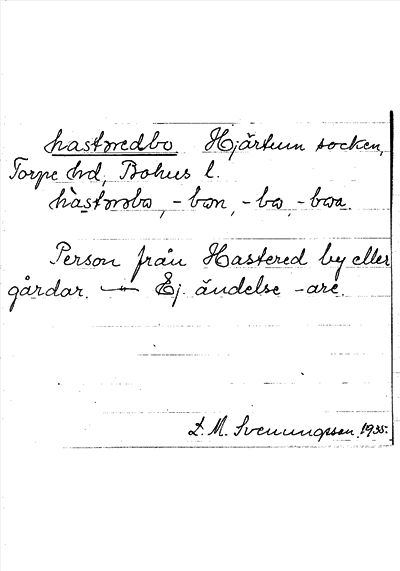 hastöredbo. Hjärtum socken,
Torpe hd, Bohus l.
-bon, -bo, -boa.
Person från Hastered by eller
gårdar. — Ej ändelse -are.
L. M. Svenungsson 1935.